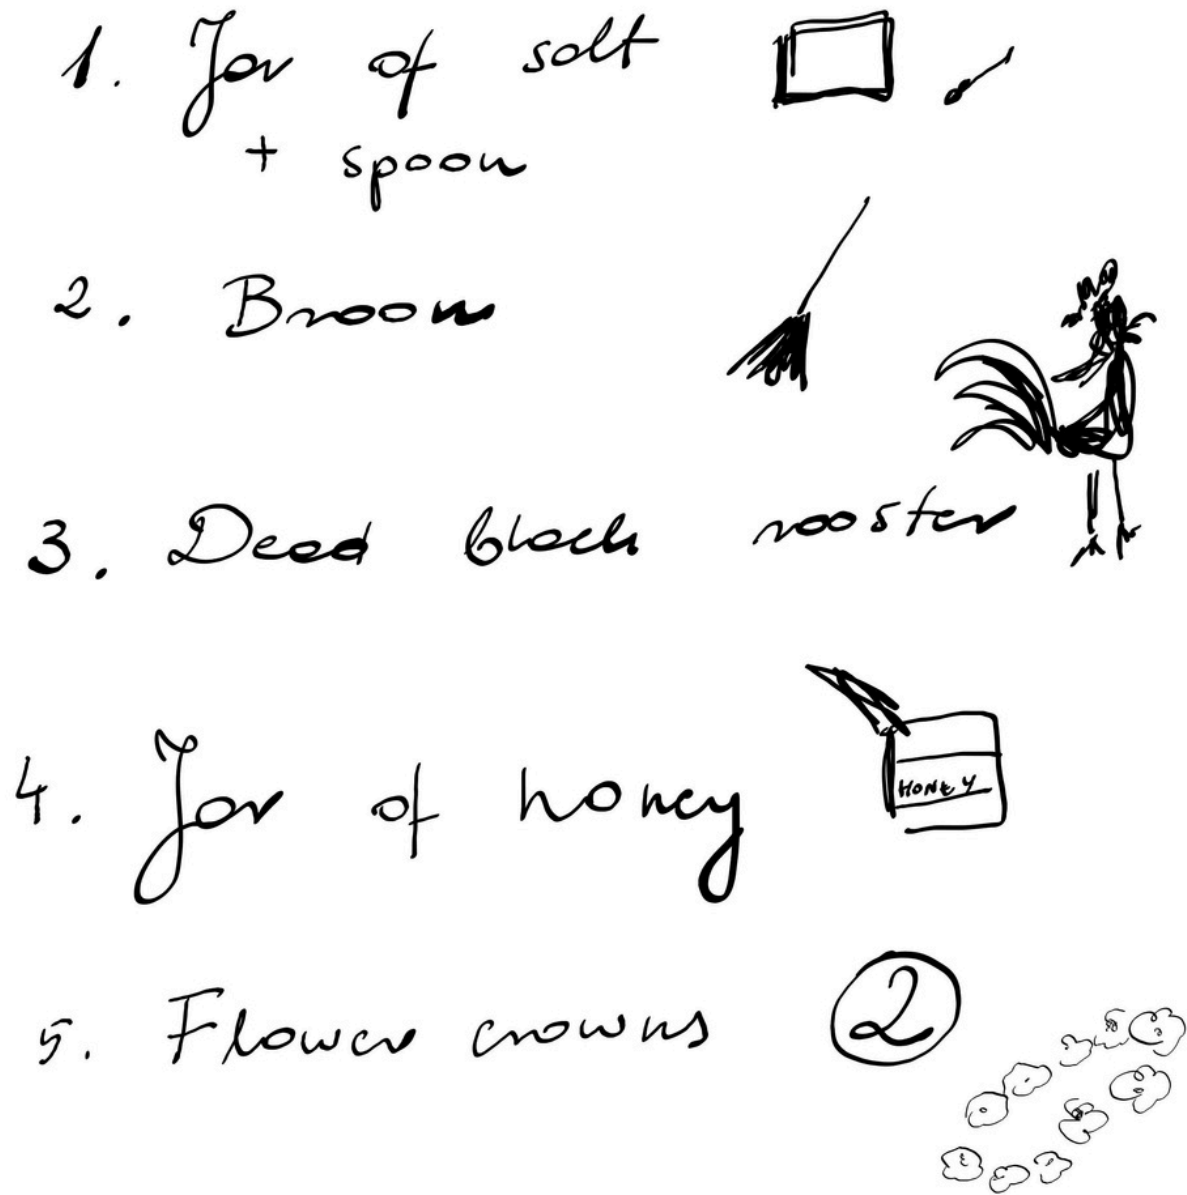 1. Jar of salt
+ spoon
2. Broom
3. Dead black rooster
4. Jar of honey
HONEY
5. Flower crowns 2